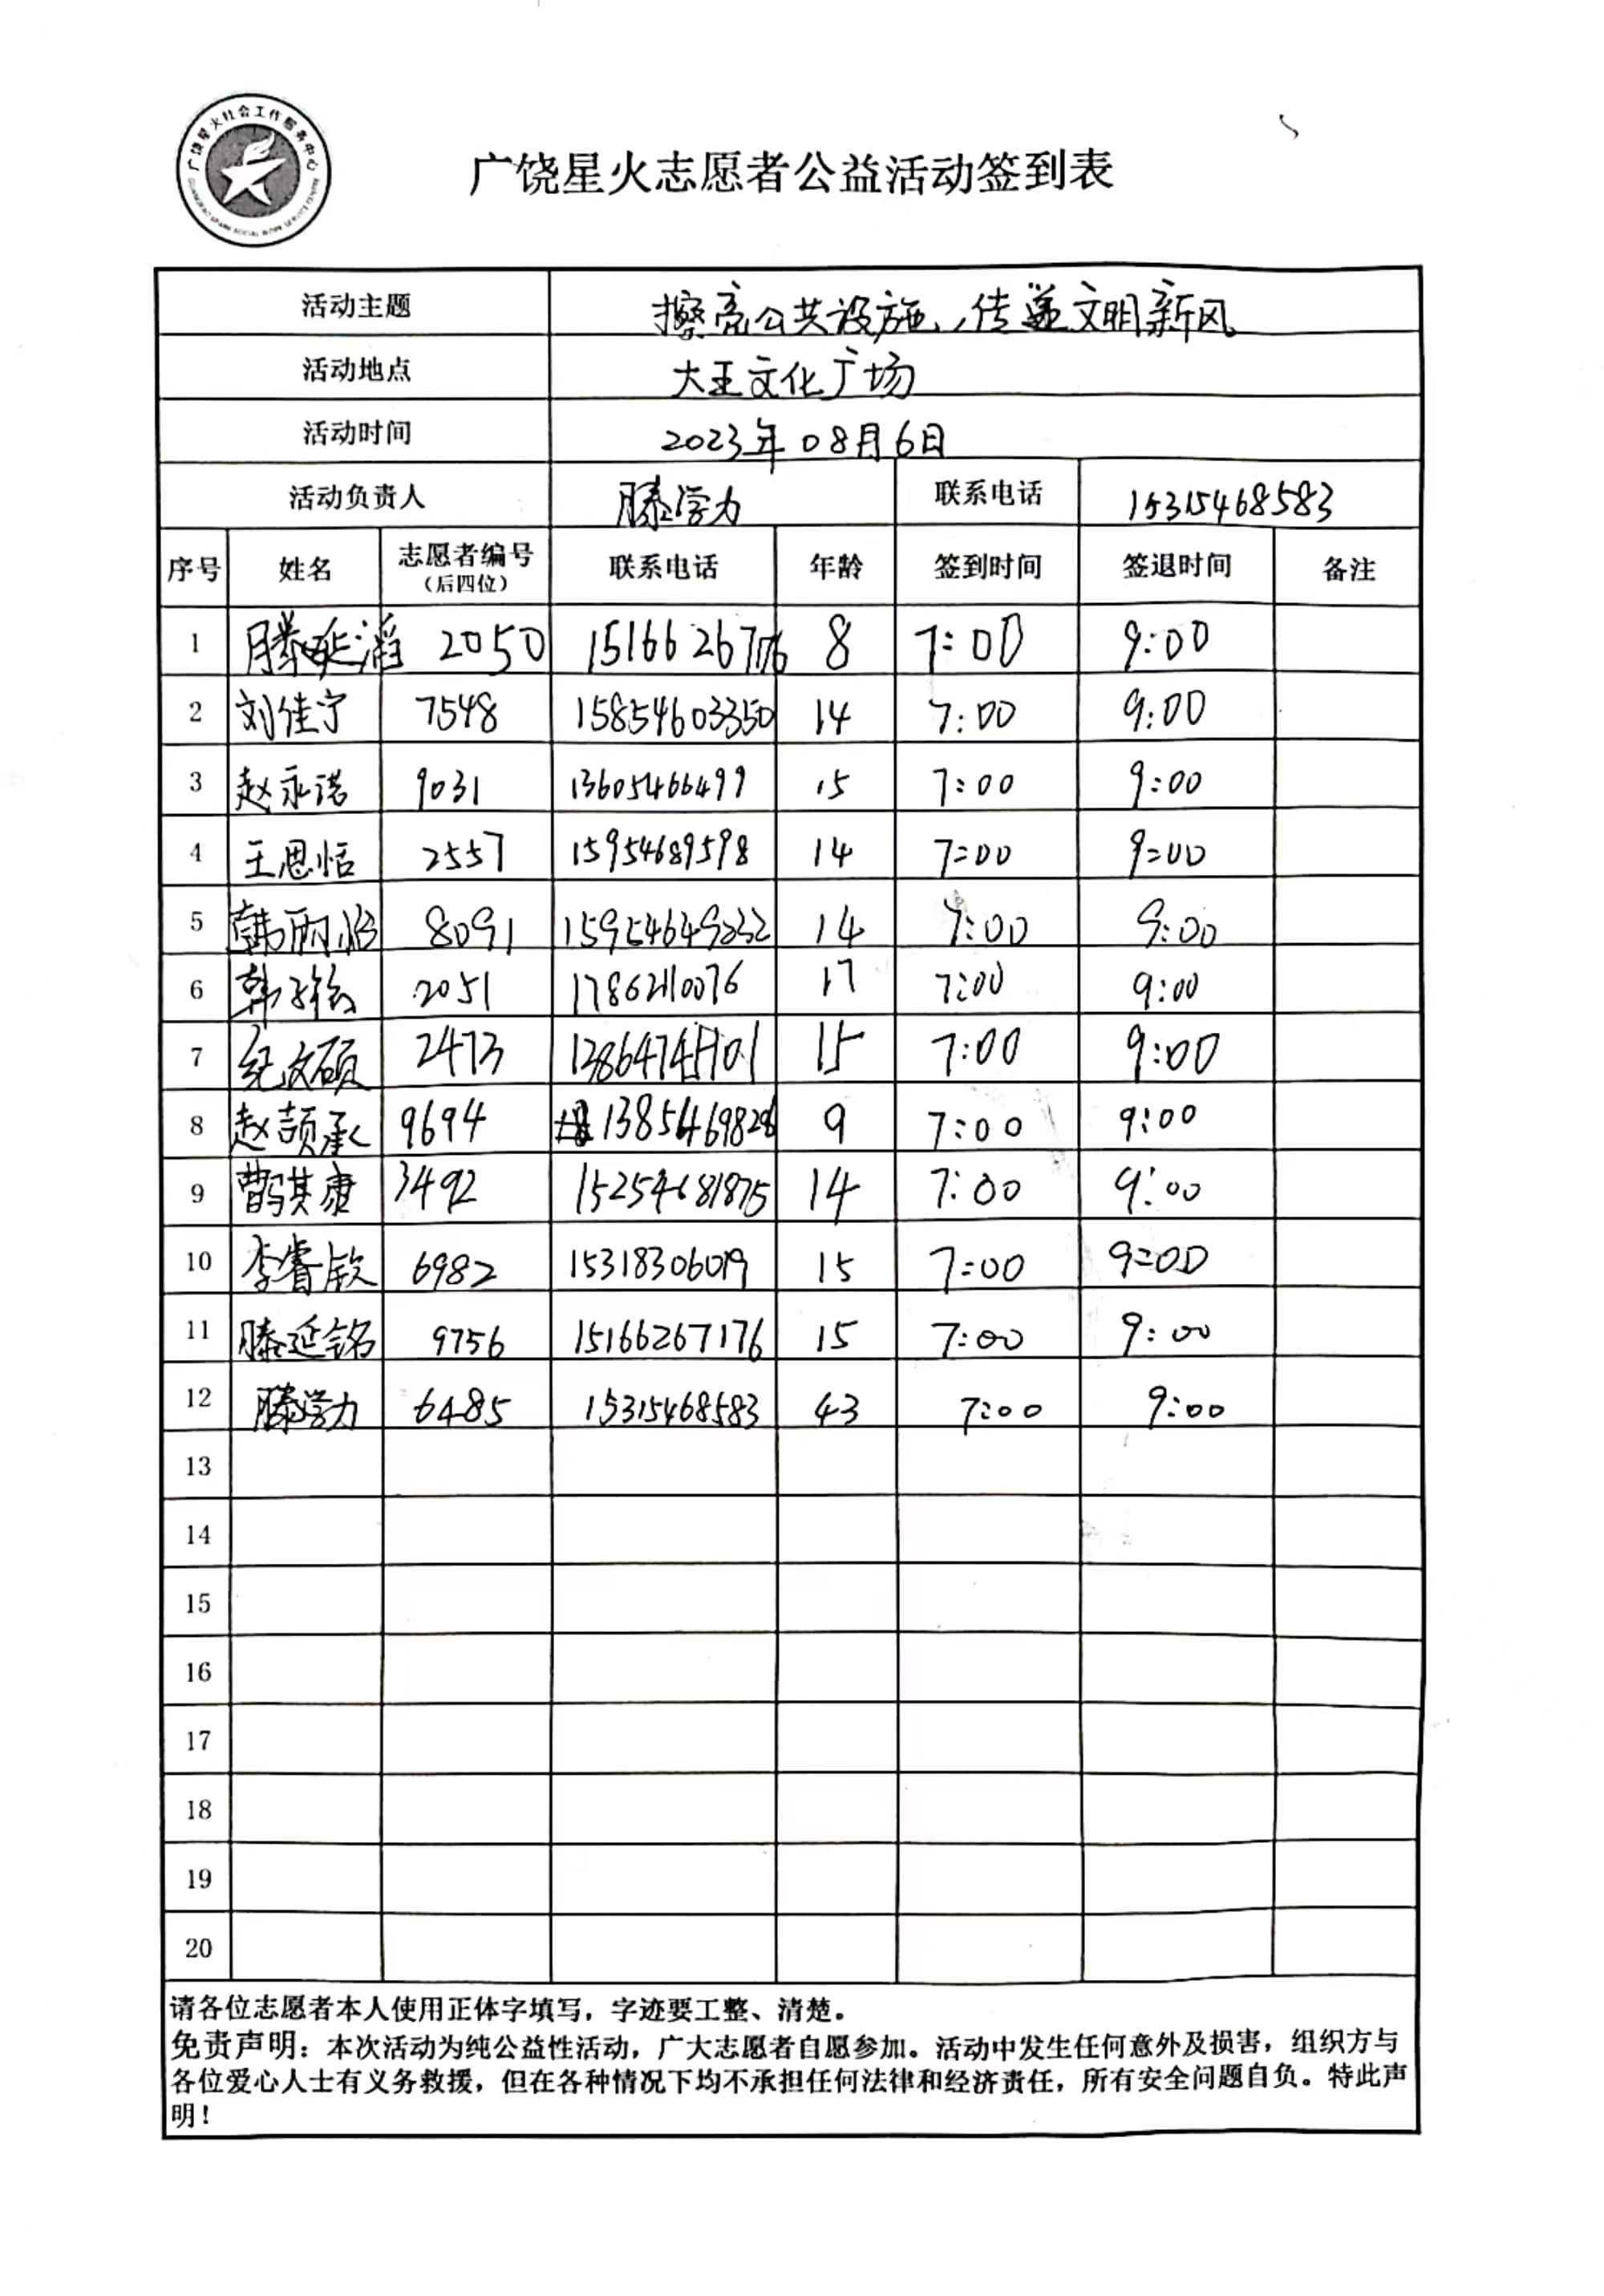 广饶星火社会工作服务中心
广饶星火志愿者公益活动签到表
活动主题 擦亮公共设施,传递文明新风
活动地点 大王文化广场
活动时间 2023年08月6日
活动负责人 滕学力 联系电话 15315468583
序号 姓名 志愿者编号(后四位) 联系电话 年龄 签到时间 签退时间 备注
1 滕延滔 2050 15166267176 8 7:00 9:00
2 刘佳宁 7548 15854603350 14 7:00 9:00
3 赵永诺 9031 13605466499 15 7:00 9:00
4 王思恬 2557 15954689598 14 7:00 9:00
5 韩雨怡 8091 15954649232 14 7:00 9:00
6 韩子铭 2051 17862110076 17 7:00 9:00
7 纪文硕 2473 15 7:00 9:00
8 赵颉承 9694 13854698286 9 7:00 9:00
9 曹琪康 3492 15254681875 14 7:00 9:00
10 李睿钦 6982 15318306019 15 7:00 9:00
11 滕延铭 9756 15166267176 15 7:00 9:00
12 滕学力 6485 15315468583 43 7:00 9:00
13
14
15
16
17
18
19
20
请各位志愿者本人使用正体字填写,字迹要工整、清楚。
免责声明:本次活动为纯公益性活动,广大志愿者自愿参加。活动中发生任何意外及损害,组织方与
各位爱心人士有义务救援,但在各种情况下均不承担任何法律和经济责任,所有安全问题自负。特此声
明!